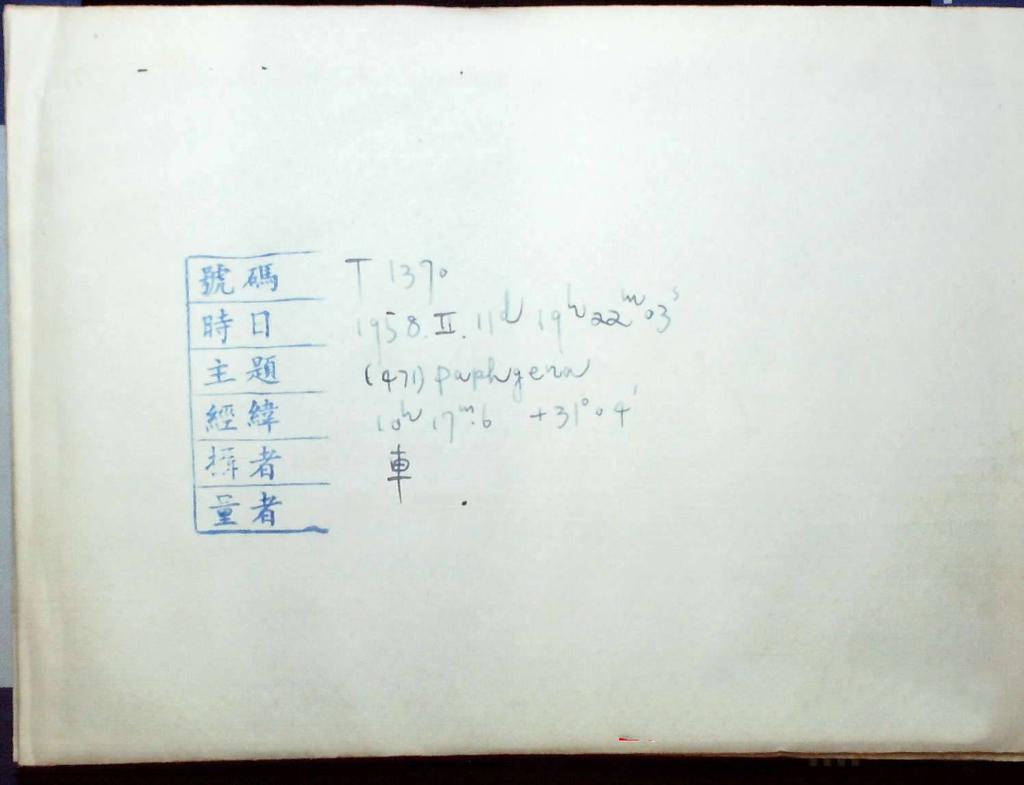 號碼 T 1370
時日 1958.II.11d 19h22m03s
主題 (471) paphgena
經緯 10h 17m.6 +31°04'
揖者 車
量者